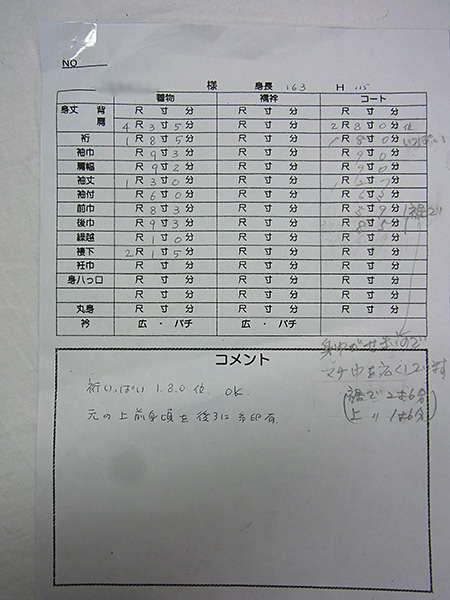 NO
様 身長 163 H 115
着物 襦袢 コート
身丈 背 尺 寸 分 尺 寸 分 尺 寸 分
肩 4尺3寸5分 尺 寸 分 2尺8寸0分位
裄 1尺8寸5分 尺 寸 分 1尺8寸0分 いっぱい
袖巾 尺9寸3分 尺 寸 分 尺9寸0分
肩幅 尺9寸2分 尺 寸 分 尺9寸0分
袖丈 1尺3寸0分 尺 寸 分 1尺 寸 分
袖付 尺6寸0分 尺 寸 分 尺6寸 分
前巾 尺8寸3分 尺 寸 分 尺5寸9分
後巾 尺9寸3分 尺 寸 分 尺8寸5分
繰越 尺1寸0分 尺 寸 分 尺 寸 分
褄下 2尺1寸5分 尺 寸 分 尺 寸 分
衽巾 尺 寸 分 尺 寸 分 尺 寸 分
身八っ口 尺 寸 分 尺 寸 分 尺 寸 分
尺 寸 分 尺 寸 分 尺 寸 分
丸身 尺 寸 分 尺 寸 分 尺 寸 分
衿 広 ・ バチ 広 ・ バチ
身巾がせまいので
マチ巾を広くしています
裾で2寸6分
上〃1寸6分
コメント
裄いっぱい 1.8.0 位 OK
元の上前身頃を後ろに 有